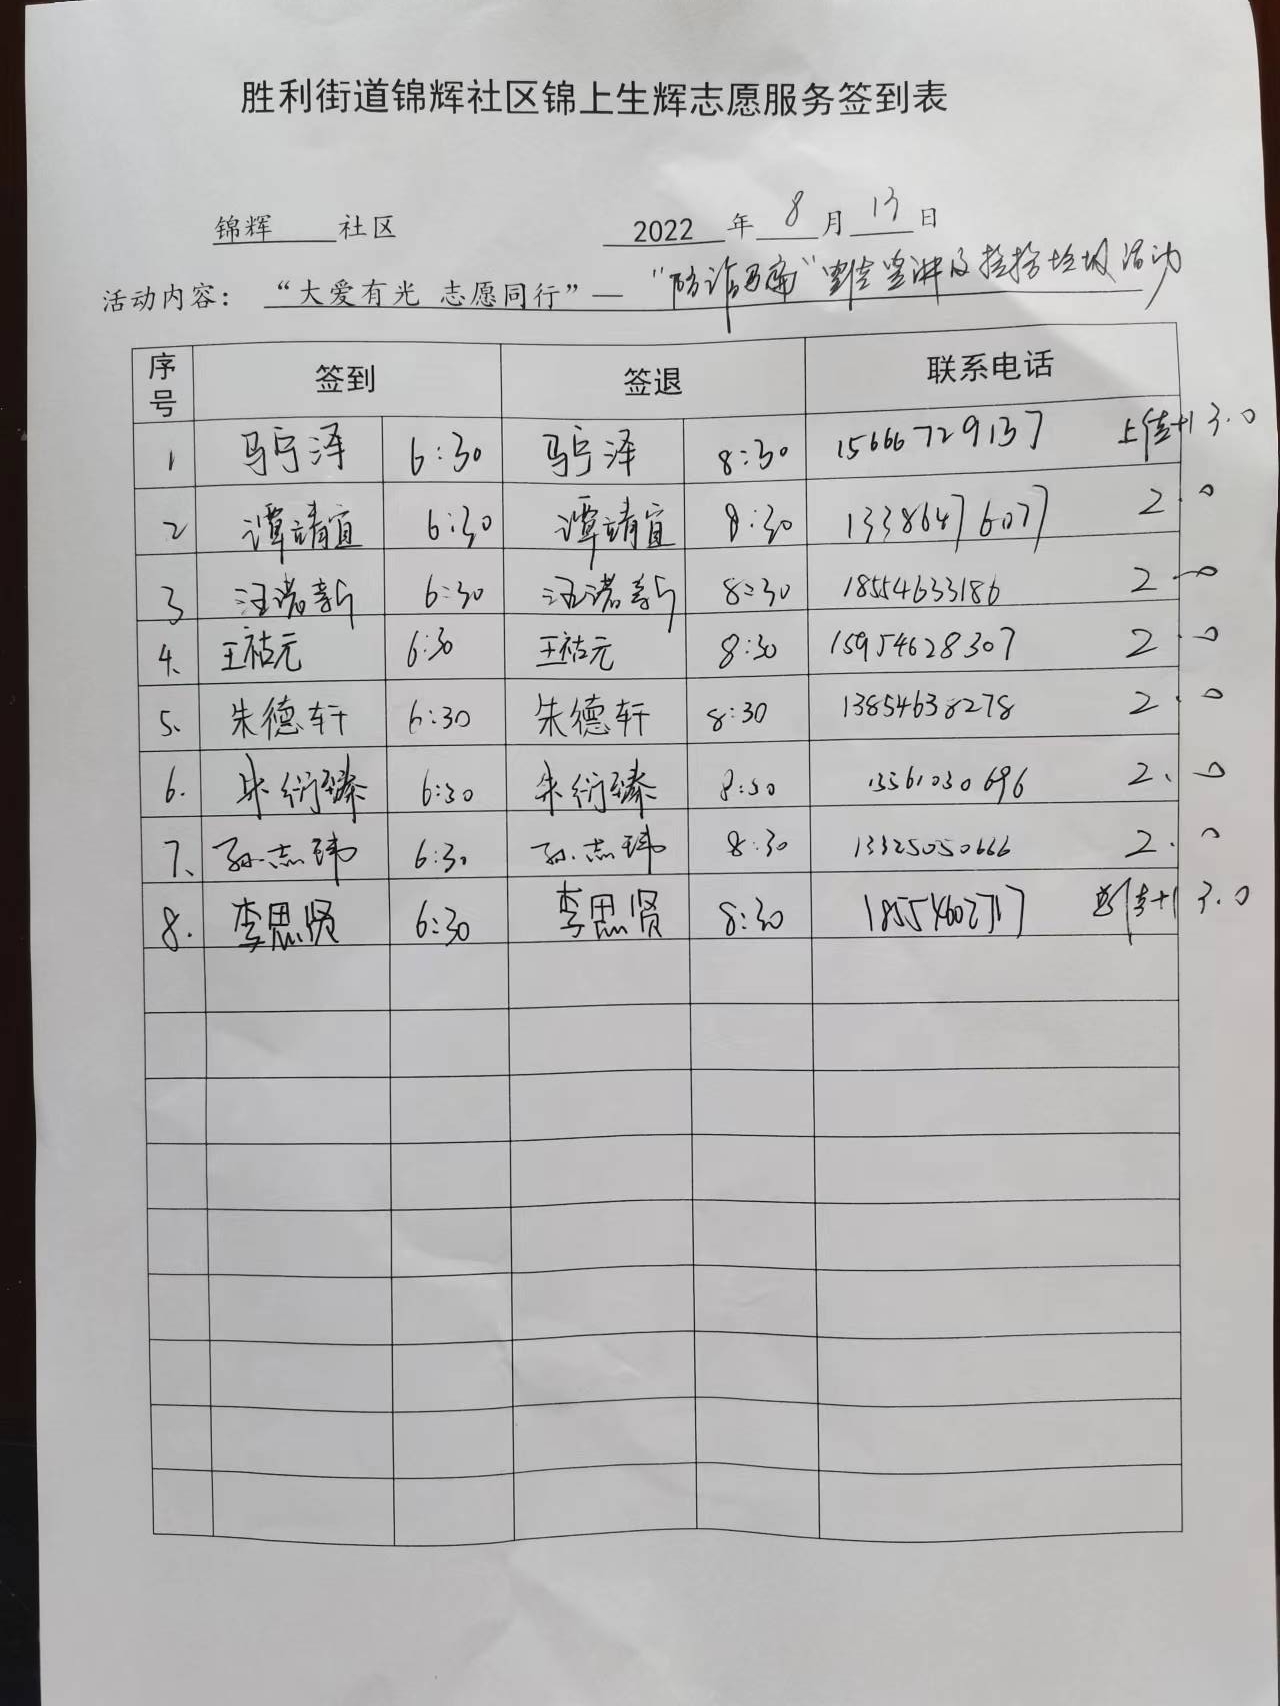 胜利街道锦辉社区锦上生辉志愿服务签到表
锦辉 社区 2022 年 8 月 13 日
活动内容： “大爱有光 志愿同行”— “防诈 ” 宣讲及捡拾垃圾活动
序号 签到 签退 联系电话
1 马宁泽 6:30 马宁泽 8:30 15666729137 +1 3.0
2 谭靖宜 6:30 谭靖宜 8:30 13386476077 2.0
3 汪诺新 6:30 汪诺新 8:30 18554633186 2.0
4、 王祜元 6:30 王祜元 8:30 15954628307 2.0
5、 朱德轩 6:30 朱德轩 8:30 13854638278 2.0
6. 朱衍臻 6:30 朱衍臻 8:30 13561030696 2.0
7、 孙志玮 6:30 孙志玮 8:30 13325050666 2.0
8. 李思贤 6:30 李思贤 8:30 +1 3.0